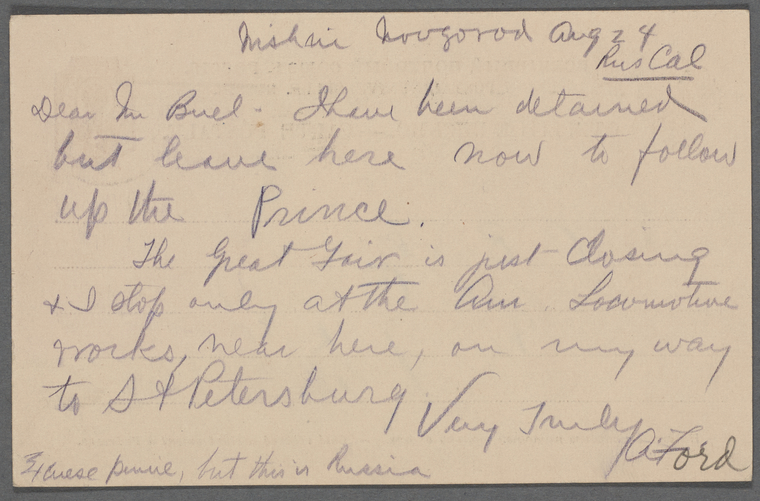 Nishni Novgorod Aug 24
Rus Cal
Dear Mr Buel - I have been detained
but leave here now to follow
up the Prince.
The Great Fair is just closing
& I stop only at the Am. Locomotive
works, near here, on my way
to St Petersburg.
Very Truly
A. Ford
Excuse pencil, but this is Russia